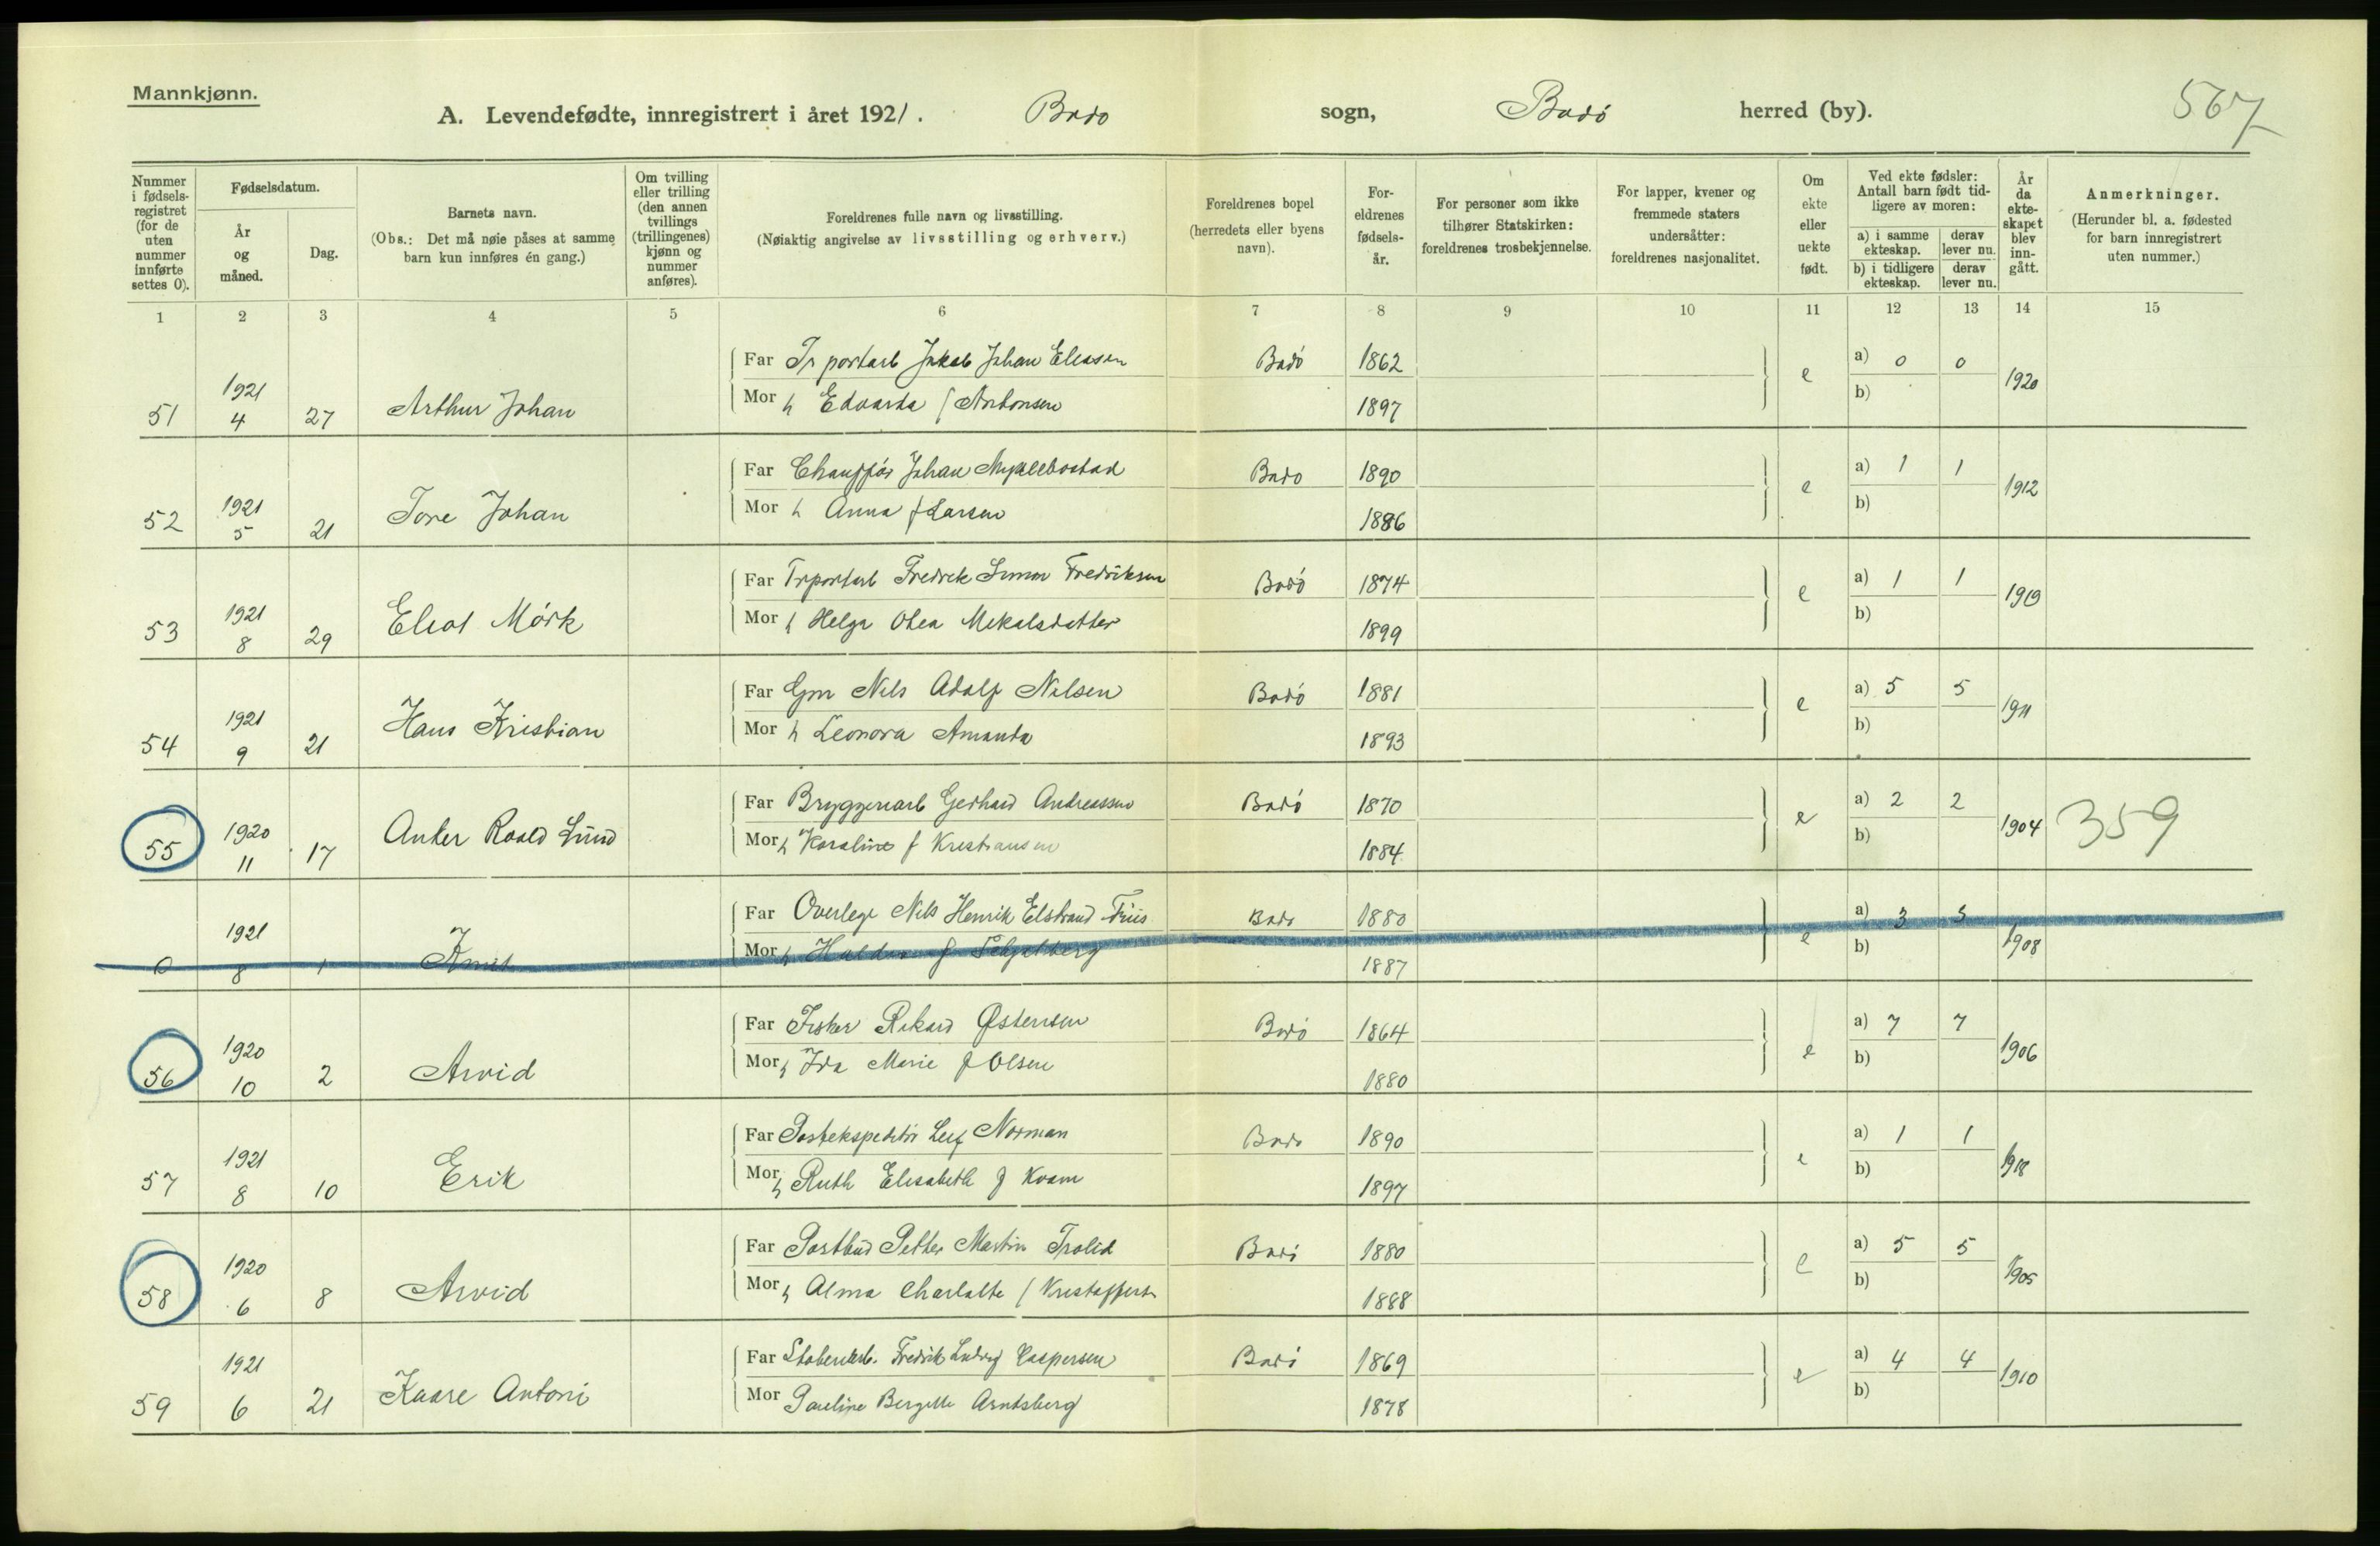 Mannkjønn.
A. Levendefødte, innregistrert i året 1921. Bodo sogn, Bodö herred (by). 567
Nummer i fødsels-registret (for de uten nummer innførte settes 0).
Fødselsdatum.
År og måned.
Dag.
Barnets navn.
(Obs.: Det må nøie påses at samme barn kun innføres én gang.)
Om tvilling eller trilling (den annen tvillings (trillingenes) kjønn og nummer anføres).
Foreldrenes fulle navn og livsstilling.
(Nøiaktig angivelse av livsstilling og erhverv.)
Foreldrenes bopel (herredets eller byens navn).
For-eldrenes fødsels-år.
For personer som ikke tilhører Statskirken: foreldrenes trosbekjennelse.
For lapper, kvener og fremmede staters undersåtter: foreldrenes nasjonalitet.
Om ekte eller uekte født.
Ved ekte fødsler: Antall barn født tid-ligere av moren:
a) i samme ekteskap. derav lever nu.
b) i tidligere ekteskap. derav lever nu.
År da ekte-skapet blev inn-gått.
Anmerkninger.
(Herunder bl. a. fødested for barn innregistrert uten nummer.)
1 2 3 4 5 6 7 8 9 10 11 12 13 14 15
Far Trportarb Jakob Johan Eliasen Bodö 1862 a) 0 0
51 1921 4 27 Arthur Johan Mor h Edvarda f Antonsen 1897 e b) 1920
Far Chaufför Johan Myklebostad Bodo 1890 a) 1 1
52 1921 5 21 Tore Johan Mor h Anna f Larsen 1886 e b) 1912
Far Trportarb Fredrik Fredriksen Bodö 1874 a) 1 1
53 1921 8 29 Mörk Mor h Helga Othea Mikalsdatter 1899 e b) 1919
Far Gm Nils Adolf Nilsen Bodö 1881 a) 5 5
54 1921 9 21 Hans Kristian Mor h Leonora Amanda 1893 e b) 1911
Far Bryggeriarb Gerhard Andreassen Bodö 1870 a) 2 2
55 1920 11 17 Anker Roald Lund Mor h Karoline f Kristiansen 1884 e b) 1904 359
Far Overlege Nils Henrik Elstrand Friis Bodo 1880 a) 3 3
0 1921 8 1 Knut Mor h f 1887 e b) 1908
Far Fisker Rikard Østensen Bodö 1864 a) 7 7
56 1920 10 2 Arvid Mor h Ida Marie f Olsen 1880 e b) 1906
Far Postekspeditör Leif Norman Bodo 1890 a) 1 1
57 1921 8 10 Erik Mor h Ruth Elisabeth f Kvam 1897 e b) 1918
Far Postbud Petter Martin Trolid Bodö 1880 a) 5 5
58 1920 6 8 Arvid Mor h Alma Charlotte f 1888 e b) 1905
Far Fredrik Ludvig Caspersen Bodö 1869 a) 4 4
59 1921 6 21 Kaare Antoni Mor Pauline Bergitte Arntsberg 1878 e b) 1910